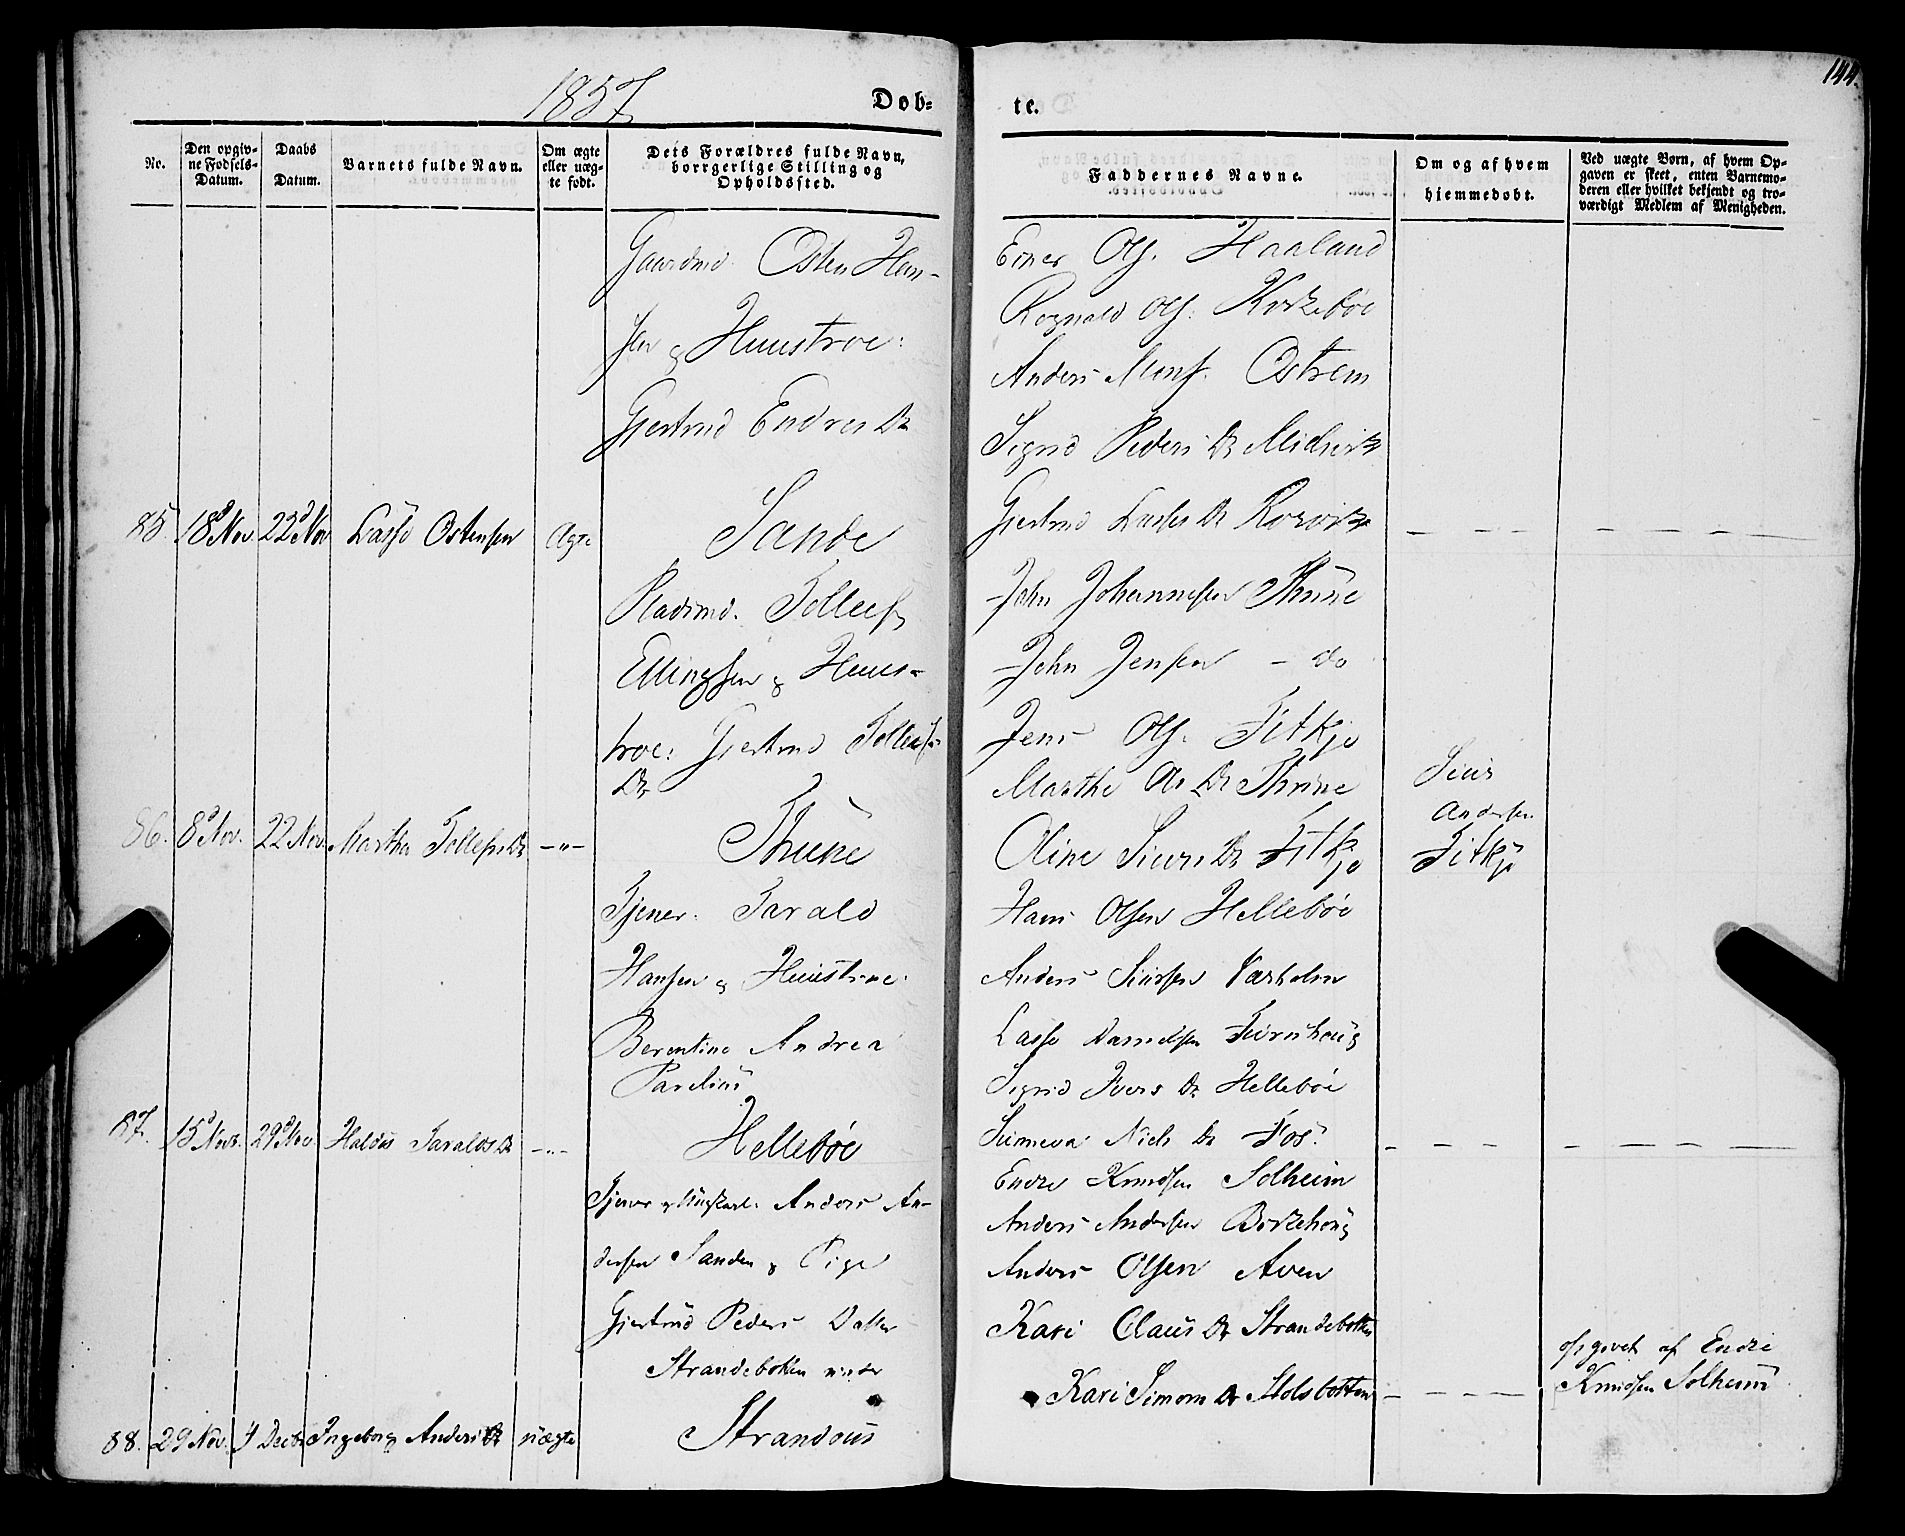 1857
144.
Døb-
te.
No.
Den opgiv-
ne Fødsels-
Datum.
Daabs
Datum.
Barnets fulde Navn.
Om ægte
eller uæg-
te født.
Dets Forældres fulde Navn,
borrgerlige Stilling og
Opholdssted.
Faddernes Navne.
Om og af hvem
hjemmedøbt.
Ved uægte Børn, af hvem Op-
gaven er skeet, enten Barnemo-
deren eller hvilket bekjendt og tro-
værdigt Medlem af Menigheden.
85.
18d Nov
22d Nov
Lasse Ostensen
Ægte
Gaardmd. Osten Han-
sen & Huustroe:
Gjertrud Endres Dr
Sande
Einer Ols. Haaland
Rognald Ols. Kirkebøe
Anders Mons. Ostrem
Sigrid Peders Dr
Gjertrud Lasses Dr
— — — —
— — — —
86.
8d Nov.
22 Nov.
Martha Tollefs Dr
—"—
Pladsmd. Tollef
Ellingsen & Huus-
troe: Gjertrud Tollefs
Dr
Thune
John Johannesen Thune
John Jensen — do
Jens Ols. Fitkje
Marthe Ols Dr Thune
Oline Siurs Dr Fitkje
Siur
Andersen
Fitkje
87.
15d Nov.
29d Nov.
Taralds Dr
—"—
Tjener. Tarald
Hansen & Huustroe.
Berentine Andrea
Hellebøe
Hans Olsen Hellebøe
Anders Siursen Værholm
Lasse Danielsen
Sigrid Ivers Dr Hellebøe
Sunneva Niels Dr Fos.
— — — —
— — — —
88.
29 Nov.
4 Decbr
Ingeborg Anders Dr
uægte
Tjener og Ungkarl. Anders An-
dersen Sanden & Pige
Gjertrud Peders Datter
Strandebotten under
Strandous
Endre Knudsen Solheim
Anders Andersen Birkehoug
Anders Olsen Aven
Kari Claus Dr Strandebotten
Kari Simons Dr Stolsbotten
— — — —
opgivet af Endre
Knudsen Solheim